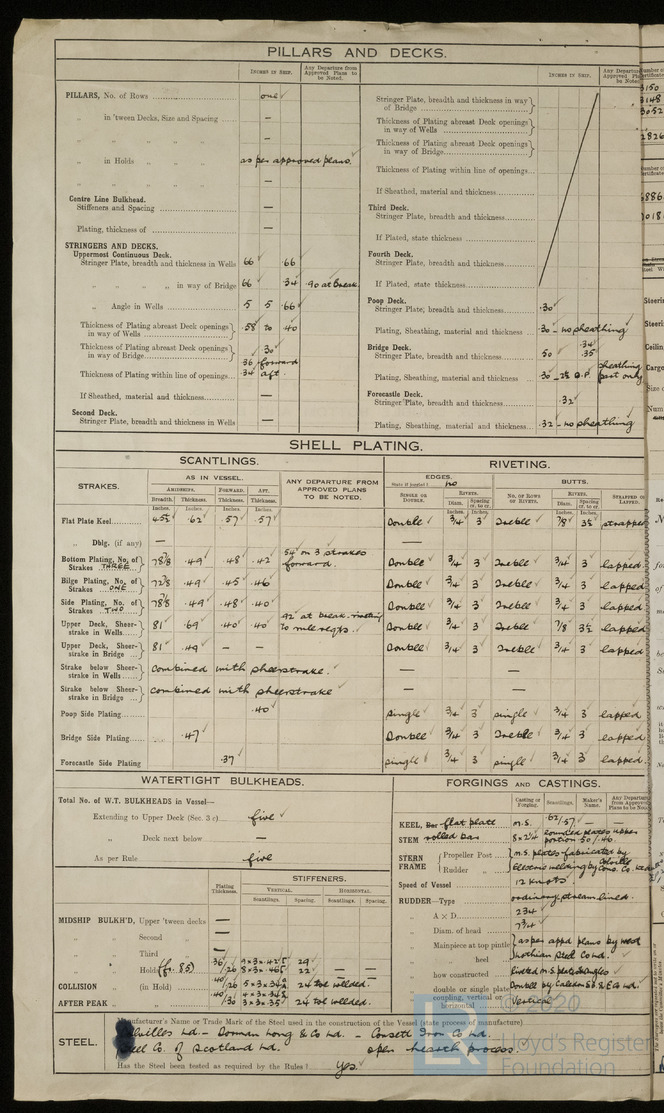 PILLARS AND DECKS.
INCHES IN SHIP. Any Departure from Approved Plans to be Noted.
PILLARS, No. of Rows one
„ in 'tween Decks, Size and Spacing —
„ „ „ „ —
„ in Holds „ „ as per approved plans.
„ „ „ „ —
Centre Line Bulkhead.
Stiffeners and Spacing —
Plating, thickness of —
STRINGERS AND DECKS.
Uppermost Continuous Deck.
Stringer Plate, breadth and thickness in Wells 66 .66
„ „ „ „ in way of Bridge 66 .34 .90 at Break.
„ Angle in Wells 5 5 .66
Thickness of Plating abreast Deck openings in way of Wells .58 to .40
Thickness of Plating abreast Deck openings in way of Bridge .30
Thickness of Plating within line of openings .36 forward .34 aft.
If Sheathed, material and thickness —
Second Deck.
Stringer Plate, breadth and thickness in Wells —
INCHES IN SHIP.
Stringer Plate, breadth and thickness in way of Bridge
Thickness of Plating abreast Deck openings in way of Wells
Thickness of Plating abreast Deck openings in way of Bridge
Thickness of Plating within line of openings
If Sheathed, material and thickness
Third Deck.
Stringer Plate, breadth and thickness
If Plated, state thickness
Fourth Deck.
Stringer Plate, breadth and thickness
If Plated, state thickness
Poop Deck.
Stringer Plate, breadth and thickness .30
Plating, Sheathing, material and thickness .30 - no sheathing
Bridge Deck.
Stringer Plate, breadth and thickness 50 .34 .35
Plating, Sheathing, material and thickness .30 - 2½ O.P. sheathing part only
Forecastle Deck.
Stringer Plate, breadth and thickness .32
Plating, Sheathing, material and thickness .32 - no sheathing
SHELL PLATING.
SCANTLINGS. RIVETING.
STRAKES. AS IN VESSEL. ANY DEPARTURE FROM APPROVED PLANS TO BE NOTED. EDGES. BUTTS.
AMIDSHIPS. FORWARD. AFT.
Breadth. Thickness. Thickness. Thickness.
SINGLE OR DOUBLE. RIVETS. Diam. Spacing cr. to cr. NO. OF ROWS OF RIVETS. RIVETS. Diam. Spacing cr. to cr. STRAPPED OR LAPPED.
Flat Plate Keel .62 .57 .57 Double 3/4 3 Treble 7/8 strapped
„ Dblg. (if any) — —
Bottom Plating, No. of Strakes THREE 78⅞ .49 .48 .42 54 on 3 strakes forward. Double 3/4 3 Treble 3/4 3 lapped
Bilge Plating, No. of Strakes ONE 72⅞ .49 .45 .46 Double 3/4 3 Treble 3/4 3 lapped
Side Plating, No. of Strakes TWO 78⅞ .49 .48 .40 Double 3/4 3 Treble 3/4 3 lapped
Upper Deck, Sheerstrake in Wells 81 .69 .40 .40 .92 at break Double 3/4 3 Treble 7/8 3½ lapped
Upper Deck, Sheerstrake in Bridge 81 .49 — — Double 3/4 3 Treble 3/4 3 lapped
Strake below Sheerstrake in Wells combined with sheerstrake. — —
Strake below Sheerstrake in Bridge combined with sheerstrake — —
Poop Side Plating .40 single 3/4 3 single 3/4 3 lapped
Bridge Side Plating .47 Double 3/4 3 Treble 3/4 3 lapped
Forecastle Side Plating .37 single 3/4 3 single 3/4 3 lapped.
WATERTIGHT BULKHEADS.
Total No. of W.T. BULKHEADS in Vessel—
Extending to Upper Deck (Sec. 3 c) five
„ Deck next below —
As per Rule five
STIFFENERS.
Plating Thickness. VERTICAL. HORIZONTAL.
Scantlings. Spacing. Scantlings. Spacing.
MIDSHIP BULKH'D, Upper 'tween decks —
„ „ Second „ —
„ „ Third „ —
„ „ Hold (fr. 85) .36/.26 29 22 — —
COLLISION „ (in Hold) .40/.26 24 toe welded.
AFTER PEAK „ „ .40/.30 24 toe welded.
FORGINGS AND CASTINGS.
Casting or Forging. Scantlings. Maker's Name. Any Departure from Approved Plans to be Noted
KEEL, Bar flat plate M.S. .62/.57 — —
STEM rolled bar 8 x 2¼ rounded plates upper portion .50/.46.
STERN FRAME Propeller Post M.S. plates fabricated by
Rudder „ Electric welding by Colville Cons. Co.
Speed of Vessel 12 knots.
RUDDER—Type ordinary streamlined.
„ A × D 234
„ Diam. of head 7¾
„ Mainpiece at top pintle as per appd plans by West
„ „ heel Lothian Steel Co Ltd.
„ how constructed
„ double or single plate Double by Caledon S.B. & E Co Ltd.
„ coupling, vertical or horizontal Vertical
STEEL. Manufacturer's Name or Trade Mark of the Steel used in the construction of the Vessel (state process of manufacture)
Colvilles Ltd - Dorman Long & Co Ltd - Consett Iron Co Ltd.
Steel Co. of Scotland Ltd. open hearth process.
Has the Steel been tested as required by the Rules? Yes.
© 2020
Lloyd's Register
Foundation